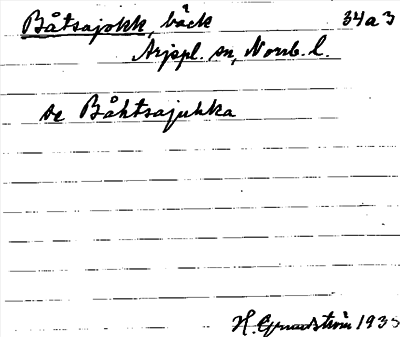 Båtsajokk, bäck 34a3
Arjspl. sn, Norrb. l.
se Båhtsajuhka
H. Grundström 1935